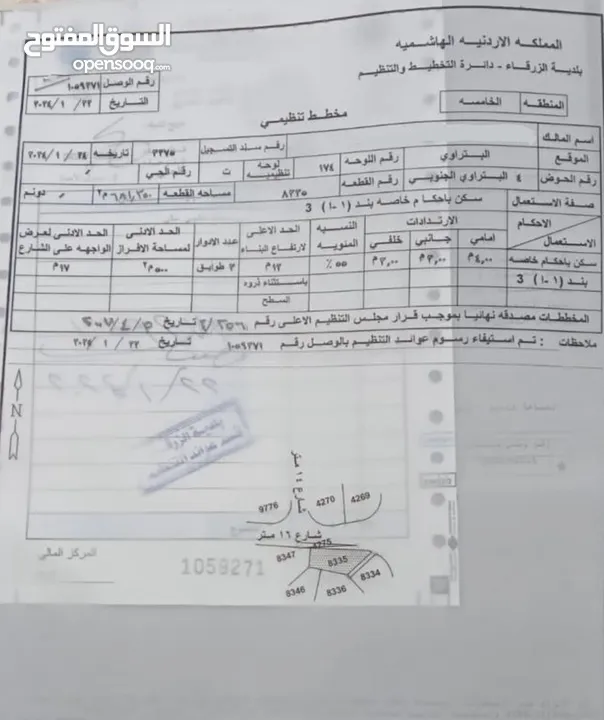 السوق المفتوح
opensooq.com
المملكه الاردنيه الهاشميه
بلدية الزرقاء - دائرة التخطيط والتنظيم
المنطقه الخامسه
رقم الوصل ١٠٥٩٢٧١
التاريخ
مخطط تنظيمي
اسم المالك
الموقع البتراوي رقم اللوحه ١٧٤ رقم سند التسجيل ٢٢٧٥ تاريخه
رقم الحوض ٤ البتراوي الجنوبي رقم القطعه ٨٣٣٥ لوحه تنظيميه ت رقم الحي
صفة الاستعمال سكن باحكام خاصه بند (١-١) 3 مساحه القطعه دونم
الاحكام الاستعمال
الارتدادات
امامي جانبي خلفي
النسبه المئويه
الحد الاعلى لارتفاع البناء
عدد الادوار
الحد الادنى لمساحة الافراز
الحد الادنى لعرض الواجهه على الشارع
سكن باحكام خاصه بند (١-١) 3
٤,٠٠م ٣,٠٠م ٣,٠٠م ٥٥٪ ١٢م ٣ طوابق ٥٠٠م٢ ١٧م
باستثناء ذروه السطح
المخططات مصدقه نهائيا بموجب قرار مجلس التنظيم الاعلى رقم تاريخ
ملاحظات : تم استيفاء رسوم عوائد التنظيم بالوصل رقم ١٠٥٩٢٧١ تاريخ
N
شارع ١٤ متر
9776
4270
4269
شارع ١٦ متر
4275
8347
8335
8334
8346
8336
المركز المالي
1059271